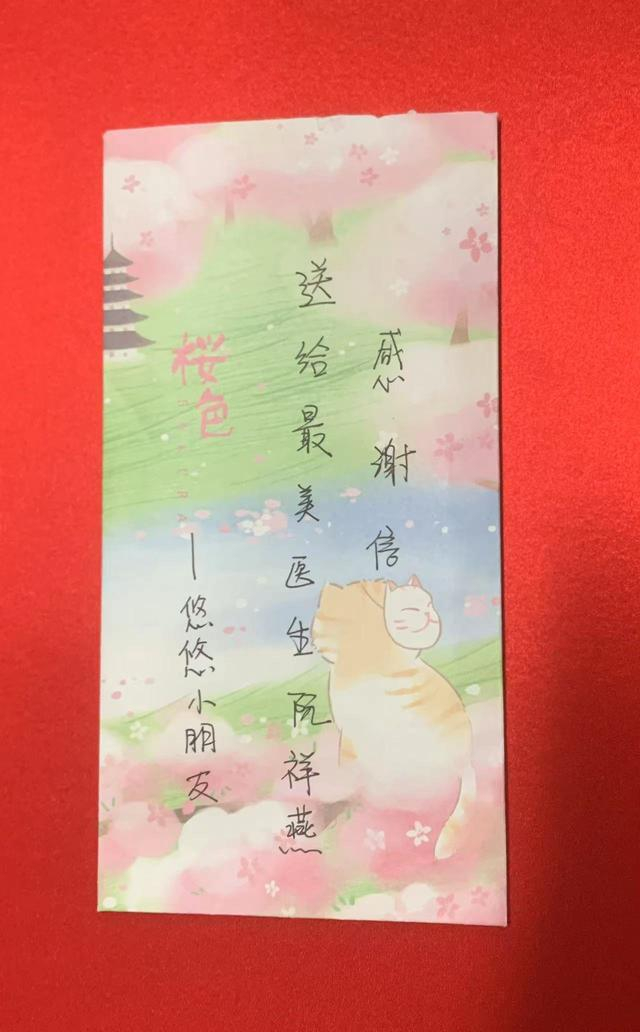 感谢信
送给最美医生阮祥燕
桜色
—悠悠小朋友